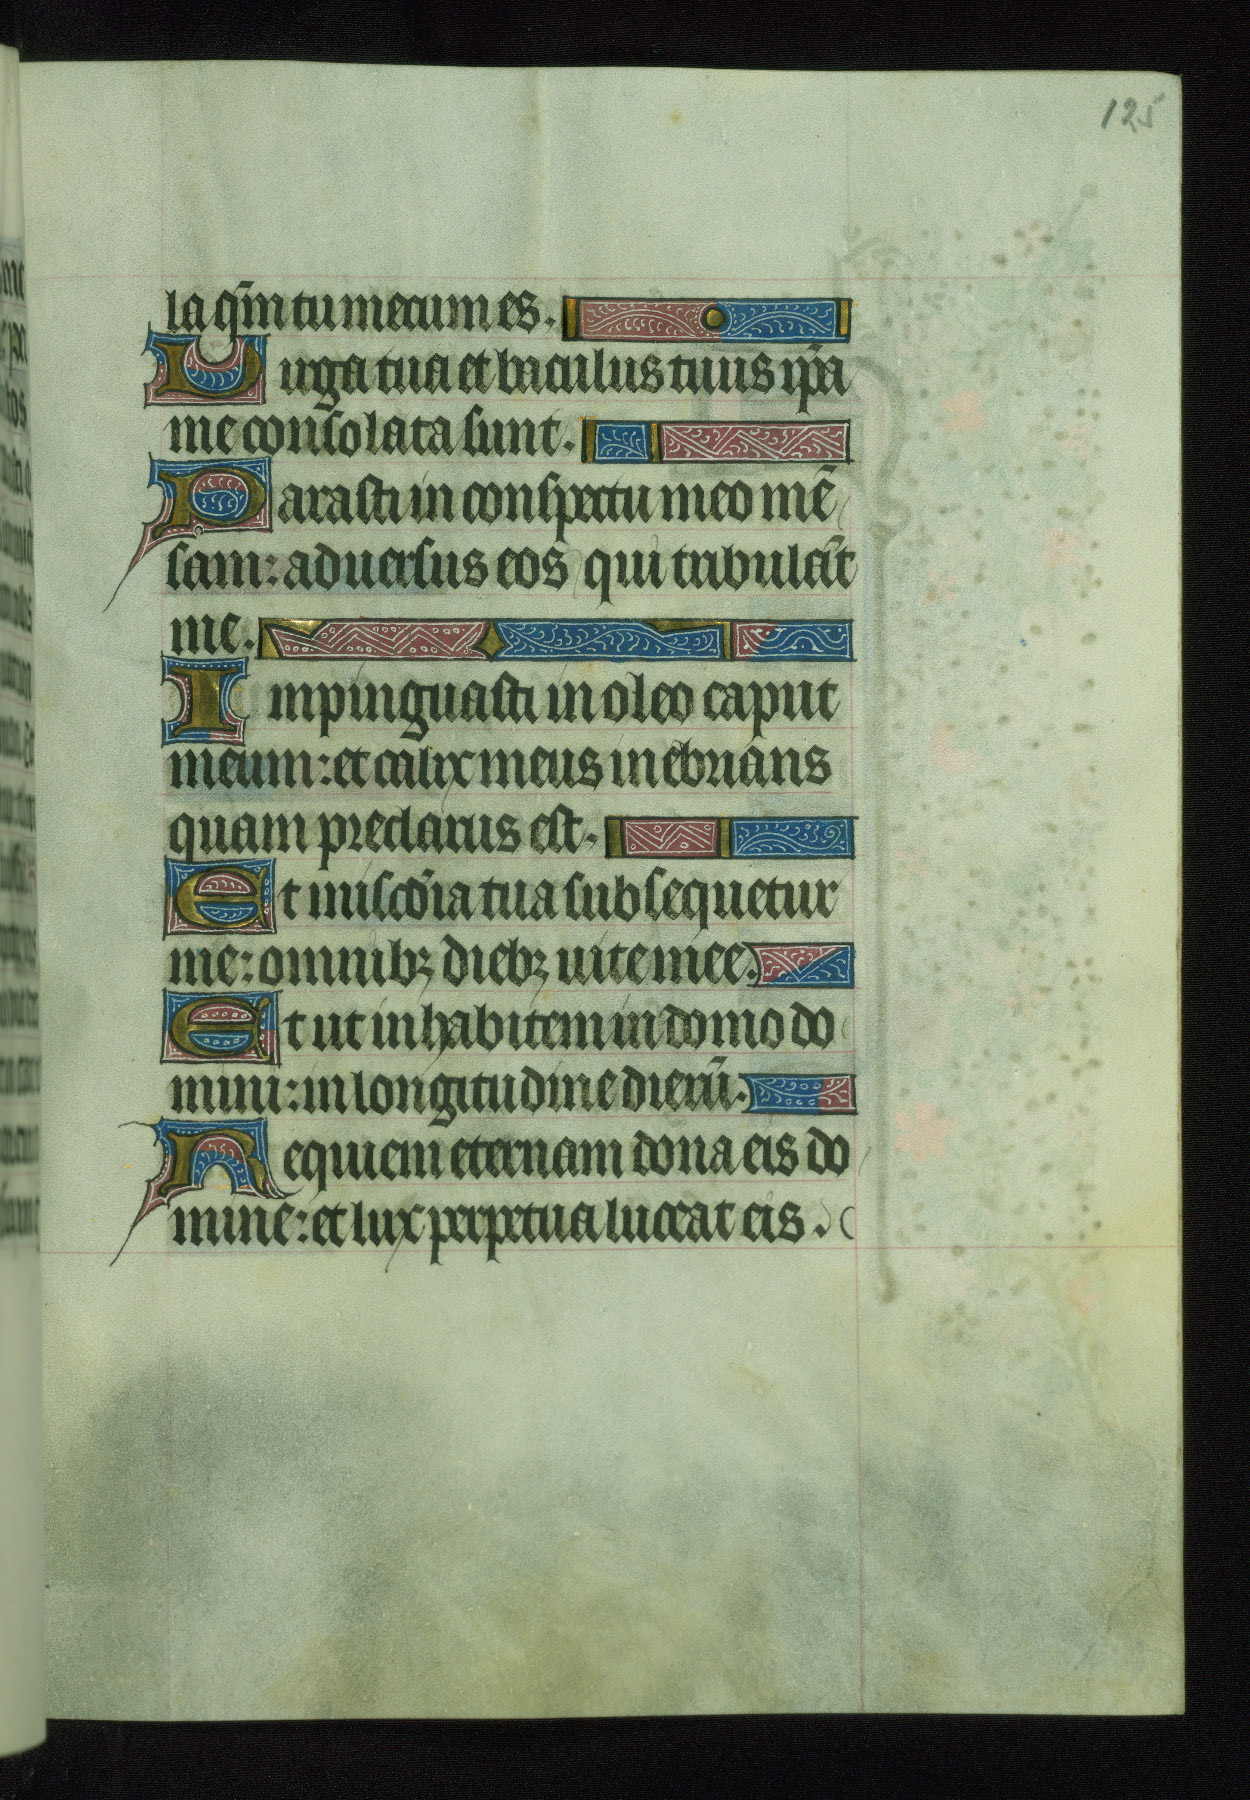 125
la qm̄ tu mecum es.
Uirga tua et baculus tuus ip̄a
me consolata sunt.
Parasti in conspectu meo mē
sam: aduersus eos qui tribulāt
me.
Impinguasti in oleo caput
meum: et calix meus inebrians
quam preclarus est.
Et misc̄dia tua subsequetur
me: omnibꝫ diebꝫ uite mee.
Et ut inhabitem in domo do
mini: in longitudine dierū.
Requiem eternam dona eis do
mine: et lux perpetua luceat eis.